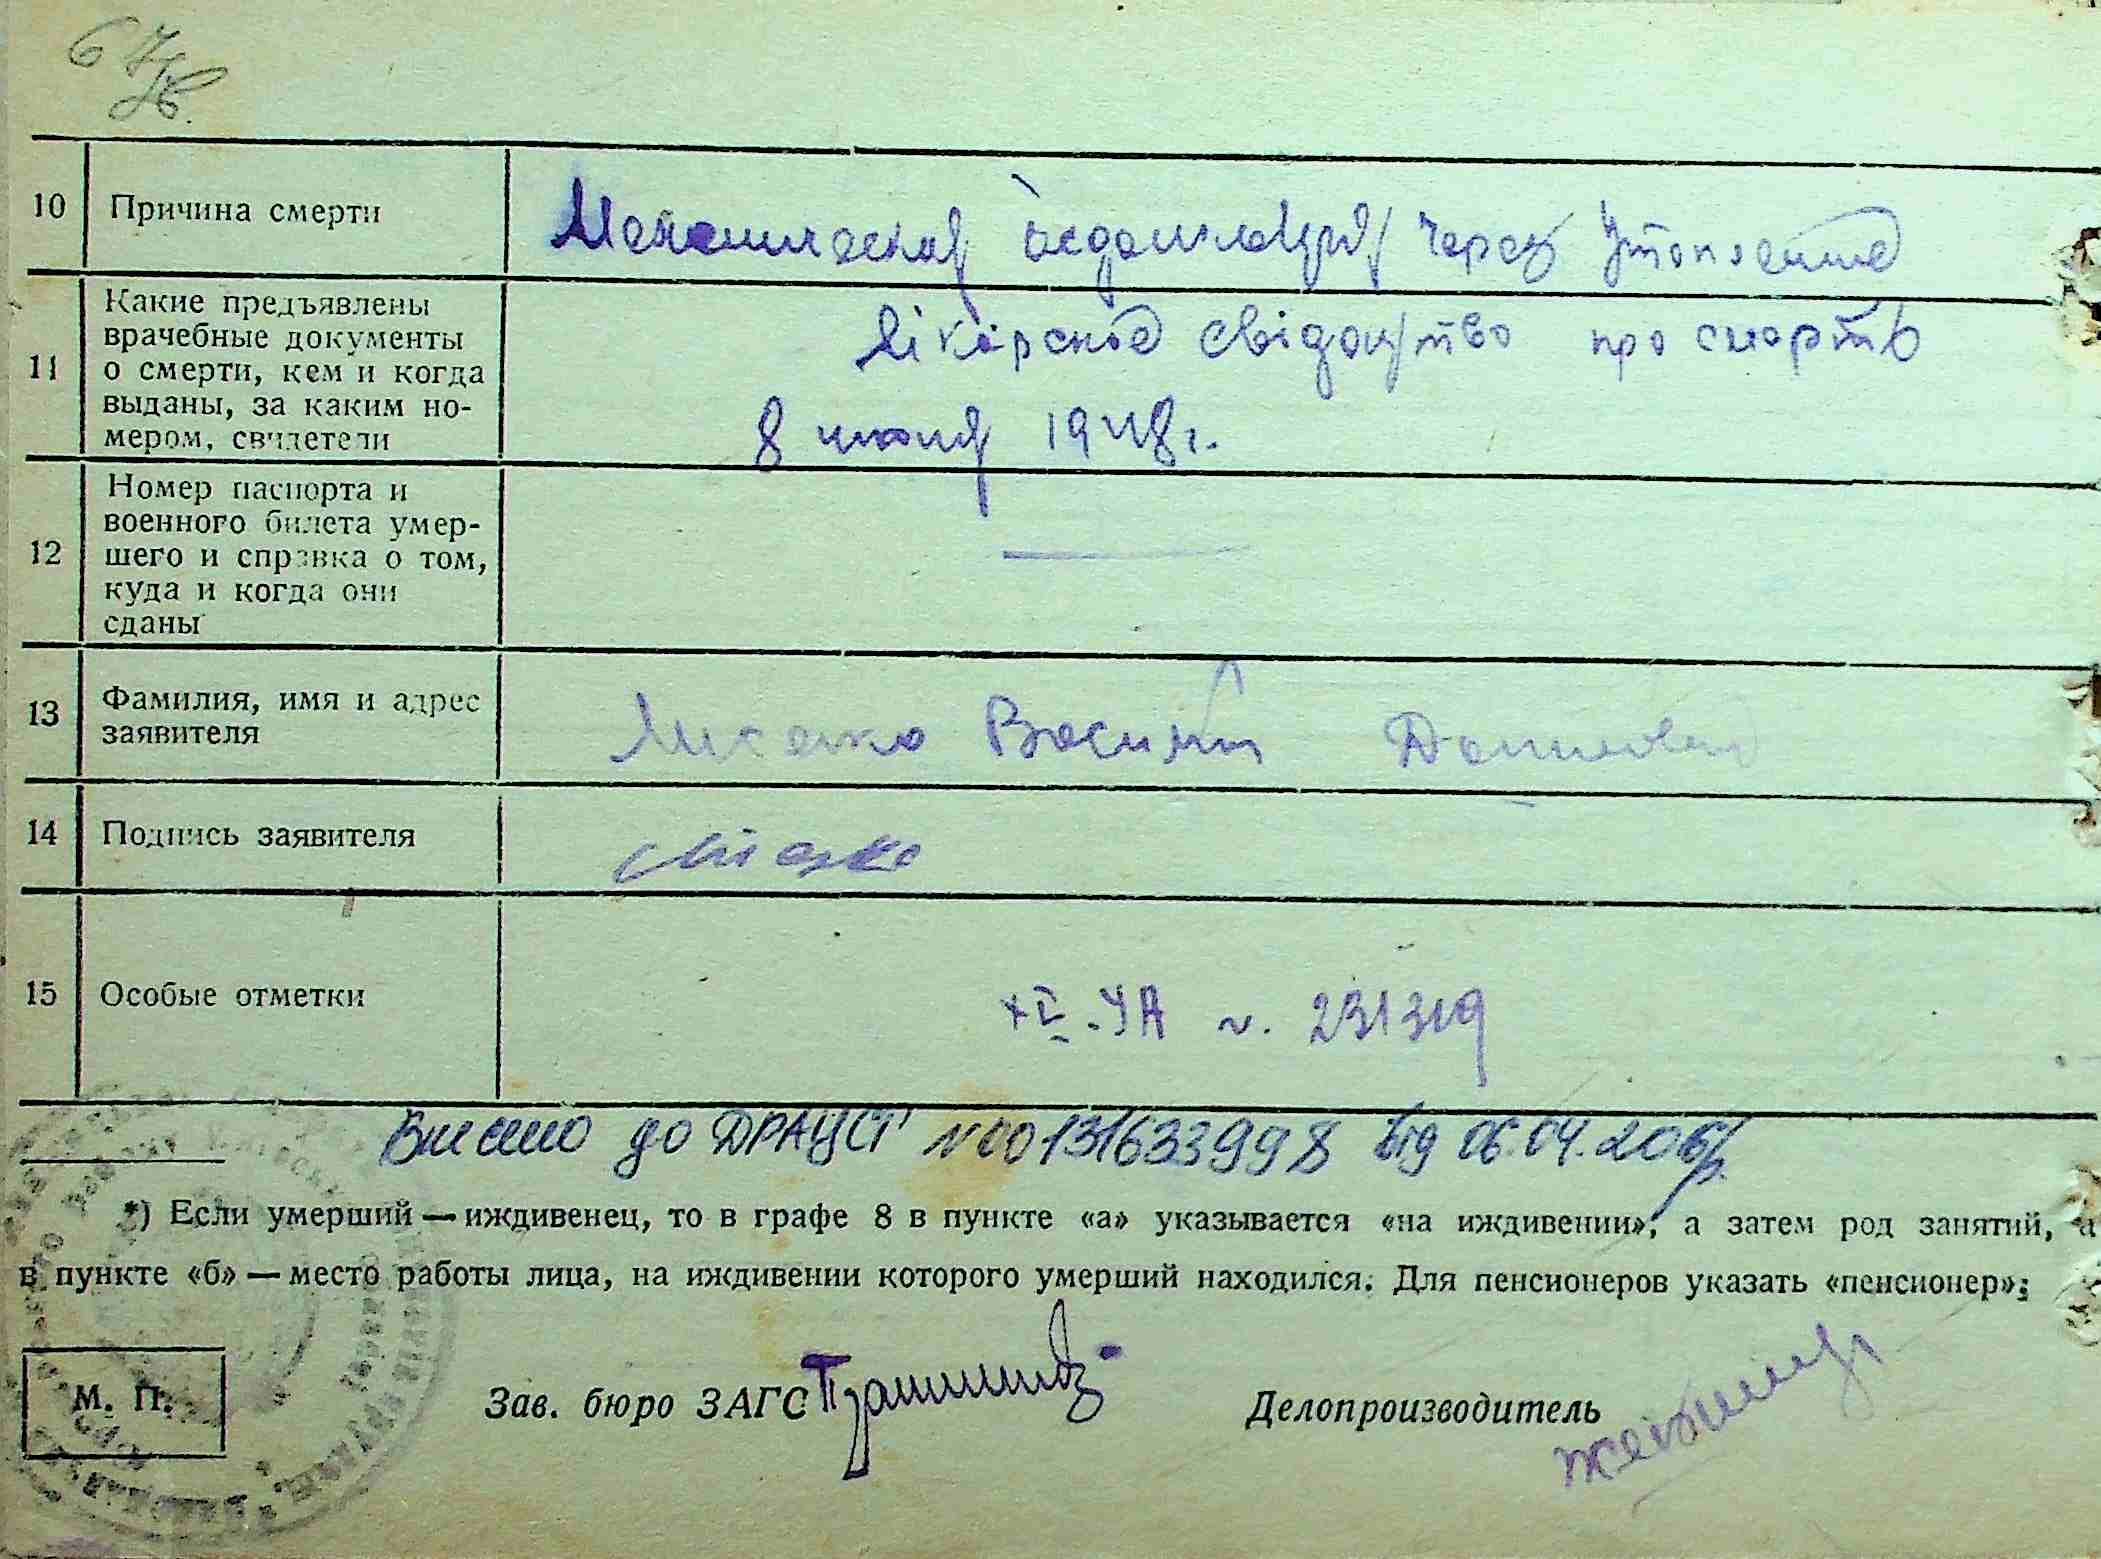 10 Причина смерти Механическая асфиксия через утопление
11 Какие предъявлены
врачебные документы
о смерти, кем и когда
выданы, за каким но-
мером, свидетели
лікарское свідоцтво про смерть
8 июня 1948 г.
12 Номер паспорта и
военного билета умер-
шего и справка о том,
куда и когда они
сданы
—
13 Фамилия, имя и адрес
заявителя
Лисенко Василий
14 Подпись заявителя
15 Особые отметки
УА 231319
Внесено до ДРАЦСГ №00131633998 від 06.04.
*) Если умерший — иждивенец, то в графе 8 в пункте «а» указывается «на иждивении», а затем род занятий, а
в пункте «б» — место работы лица, на иждивении которого умерший находился. Для пенсионеров указать «пенсионер»;
М. П.
Зав. бюро ЗАГС
Делопроизводитель